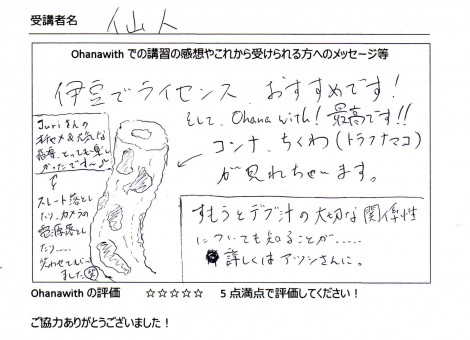 受講者名 仙人
Ohanawith での講習の感想やこれから受けられる方へのメッセージ等
伊豆でライセンス おすすめです!
そして、Ohana with! 最高です!!
コンナ、ちくわ(トラフナマコ)
が見れちゃいます。
Juriさんの
指導、とっても楽し
かったです〜♪
スレート落とし
たり、カメラの
電源落とし
たり.....
笑わせてもらい
ました(笑)
すもうとデブ汁の大切な関係性
についても知ることが.....
詳しくはアツシさんに。
Ohanawith の評価 ☆☆☆☆☆ 5 点満点で評価してください!
ご協力ありがとうございました!